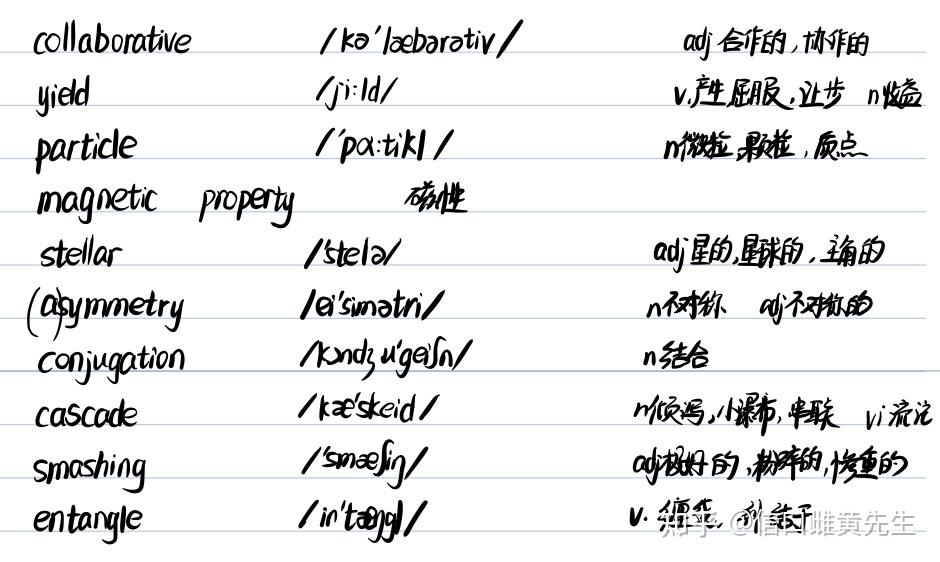 collaborative /kə'læbərətiv/ adj 合作的,协作的
yield /ji:ld/ v.产生屈服,让步 n收益
particle /'pɑ:tikl/ n微粒,颗粒,质点
magnetic property 磁性
stellar /'stelə/ adj星的,星球的,主角的
(a)symmetry /ei'simətri/ n不对称 adj不对称的
conjugation /kɔndʒu'geiʃn/ n结合
cascade /kæ'skeid/ n倾泻,小瀑布,串联 vi流注
smashing /'smæʃiŋ/ adj极好的,粉碎的,惨重的
entangle /in'tæŋgl/ v. 缠住
知乎 @信口雌黄先生